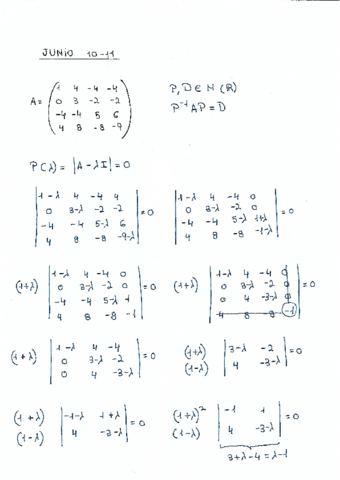 JUNIO 10-11
A = ( 1 4 -4 -4
0 3 -2 -2
-4 -4 5 6
4 8 -8 -9 )
P, D ∈ M (ℝ)
P⁻¹AP = D
P(λ) = |A - λI| = 0
| 1-λ 4 -4 4 |
| 0 3-λ -2 -2 |
| -4 -4 5-λ 6 |
| 4 8 -8 -9-λ | = 0
| 1-λ 4 -4 0 |
| 0 3-λ -2 0 |
| -4 -4 5-λ 1+λ |
| 4 8 -8 -1-λ | = 0
(1+λ) | 1-λ 4 -4 0 |
| 0 3-λ -2 0 |
| -4 -4 5-λ 1 |
| 4 8 -8 -1 | = 0
(1+λ) | 1-λ 4 -4 0 |
| 0 3-λ -2 0 |
| 0 4 -3-λ 0 |
| 4 8 -8 -1 | = 0
(1+λ) | 1-λ 4 -4 |
| 0 3-λ -2 |
| 0 4 -3-λ | = 0
(1+λ) (1-λ) | 3-λ -2 |
| 4 -3-λ | = 0
(1+λ) (1-λ) | -1-λ 1+λ |
| 4 -3-λ | = 0
(1+λ)² (1-λ) | -1 1 |
| 4 -3-λ | = 0
3+λ-4 = λ-1